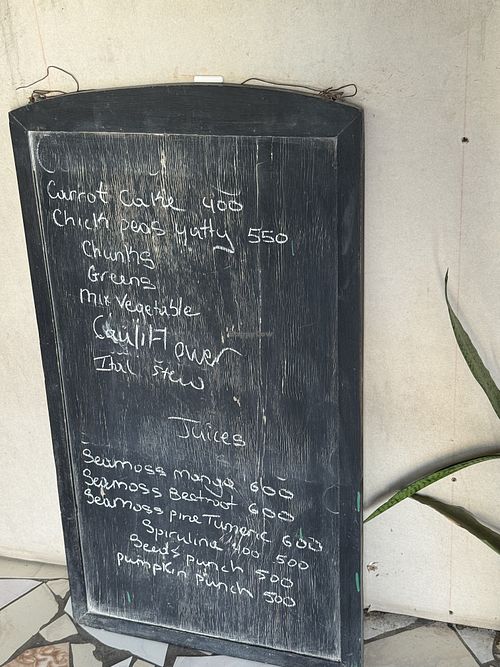 Carrot Cake 400
Chick peas Patty 550
Chunks
Greens
Mix Vegetable
Cauliflower
Ital stew
Juices
Seamoss mango 600
Seamoss Beetroot 600
Seamoss pine Tumeric 600
Spirulina 400 500
Seeds punch 500
Pumpkin punch 500